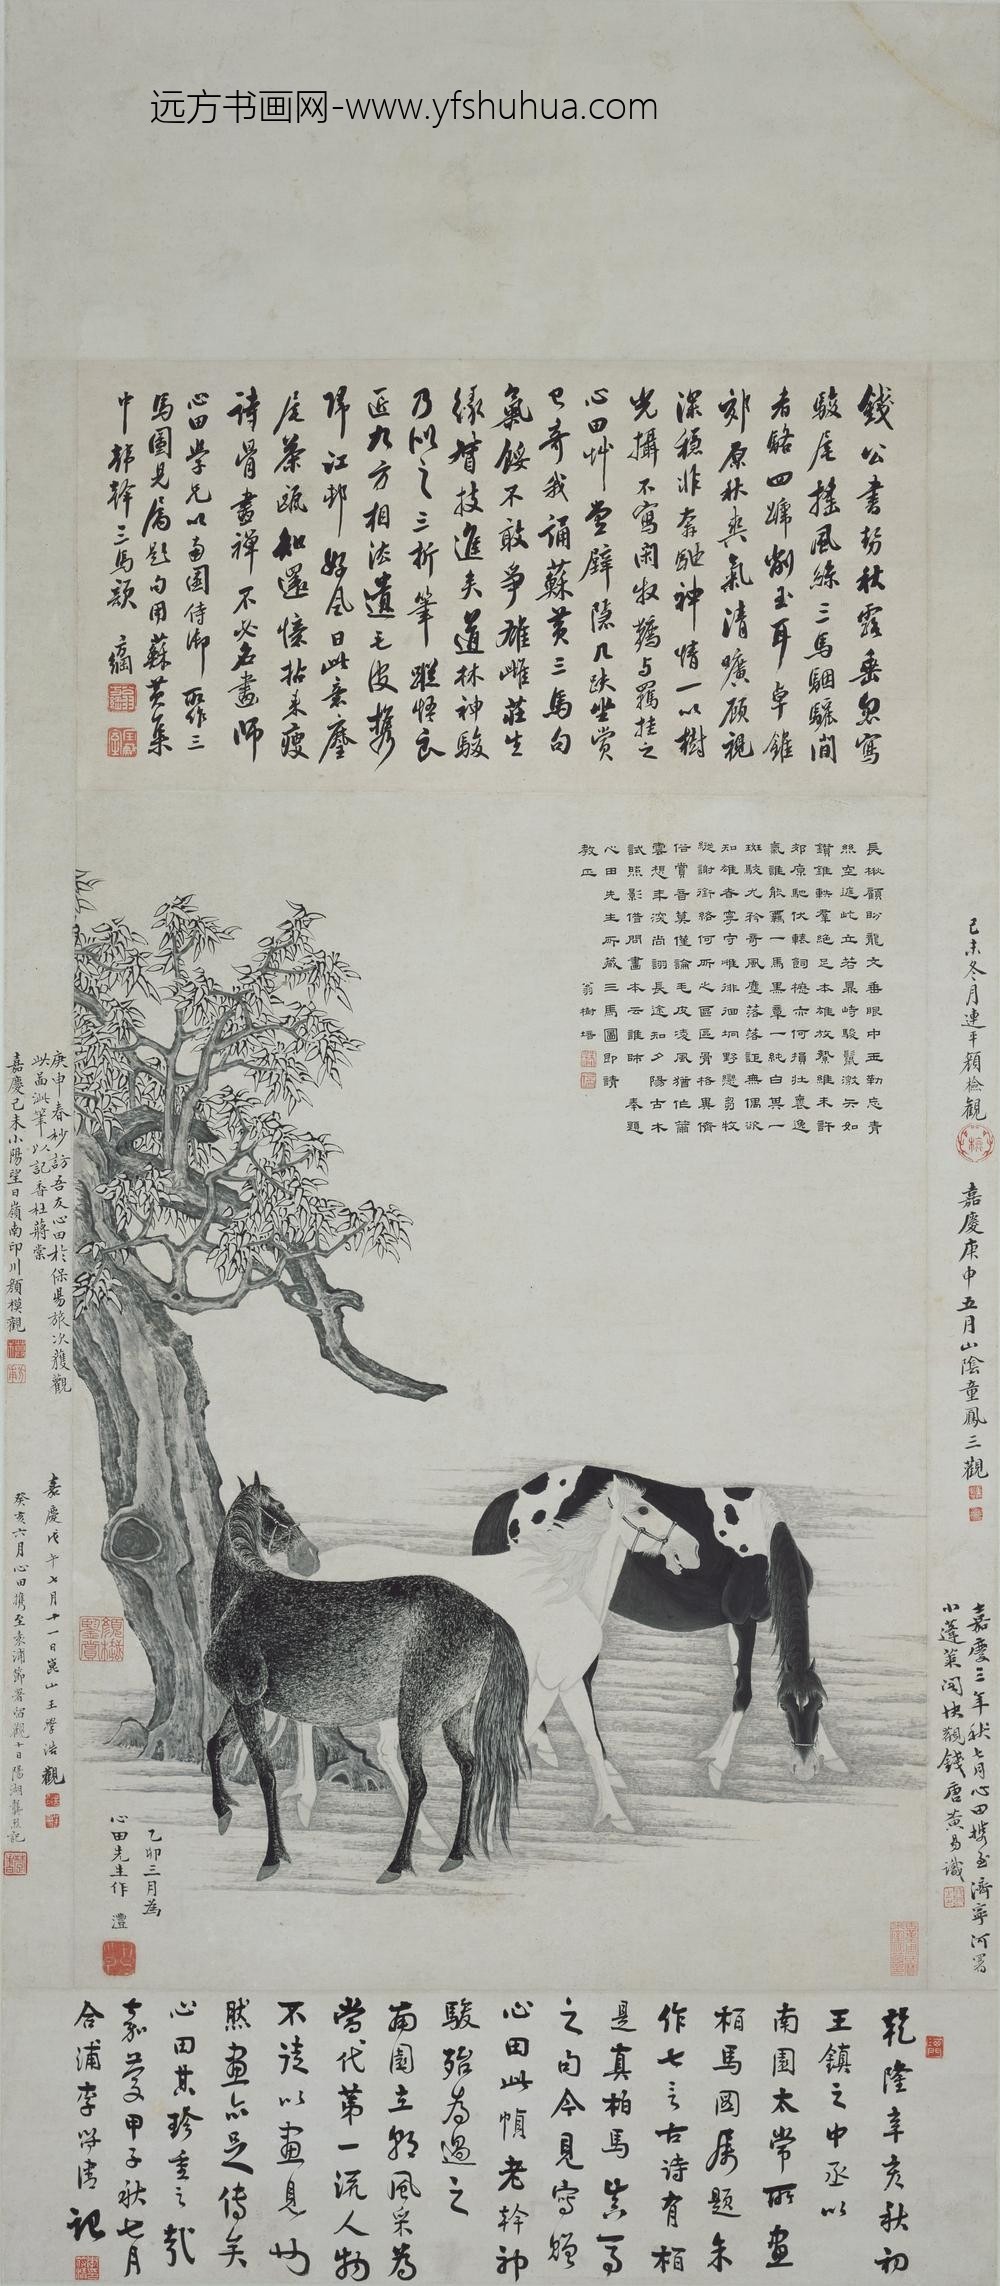 远方书画网-www.yfshuhua.com
錢公書勢秋露垂忽寫
駿尾搖風絲三馬駰驖間
者駱四蹄削玉耳卓錐
郊原秋爽氣清曠顧視
深穩非奔馳神情一以樹
光攝不寫閑牧羈与羈挂之
心田艸堂壁隱几趺坐賞
已奇我誦蘇黃三馬句
氣餒不敢爭雄雌莊生
緣督技進矣道林神駿
乃似之三折筆蹤悟良
匠九方相法遺毛皮攜
歸江邨好風日此意麈
尾茶甌知還憶拈來瘦
詩骨畫禪不必名畫師
心田學兄以南園侍御所作三
馬圖見屬題句用蘇黃集
中韓幹三馬韻 方綱
長楸顧盼龍文垂眼中玉勒忘青
絲空遮屹立若鼎峙駿鬣漱矢如
鑽錐軼羣絕足本雄放縶維未許
郊原馳伏轅飼櫪亦何損壯襄逸
氣誰能羈一馬黑章一純白其一
斑駮尤矜奇風塵落落詎無偶派
知雄者寧守雌徘徊坰野戀芻牧
縱謝銜絡何所之區區骨格異儕
俗賞音莫僅論毛皮凌風猶作蕭
雲想年深尚詡長途知夕陽古木
試照影借問畫本云誰師 奉題
心田先生所藏三馬圖即請
教正 翁樹培
己未冬月連平顏檢觀
嘉慶庚申五月山陰童鳳三觀
嘉慶三年秋七月心田攜至濟寧河署
小蓬萊閣快觀錢唐黃易識
庚申春杪訪吾友心田於保陽旅次獲觀
此畫泚筆以記香杜蔣棠
嘉慶己未小陽望日嶺南印川顏模觀
嘉慶戊午七月十一日崑山王學浩觀
癸亥六月心田攜至袁浦節署留觀十日陽湖龔烈記
顏樾
鑒賞
乙卯三月為
心田先生作 灃
乾隆辛亥秋初
王鎮之中丞以
南園太常所畫
柏馬圖屬題余
作七言古詩有柏
是真柏馬真馬
之句今見寫贈
心田此幀老幹神
駿殆為過之
南園立朝風采為
當代第一流人物
不徒以畫見也
然畫亦足傳矣
心田其珍重之哉
嘉慶甲子秋七月
合浦李符清記